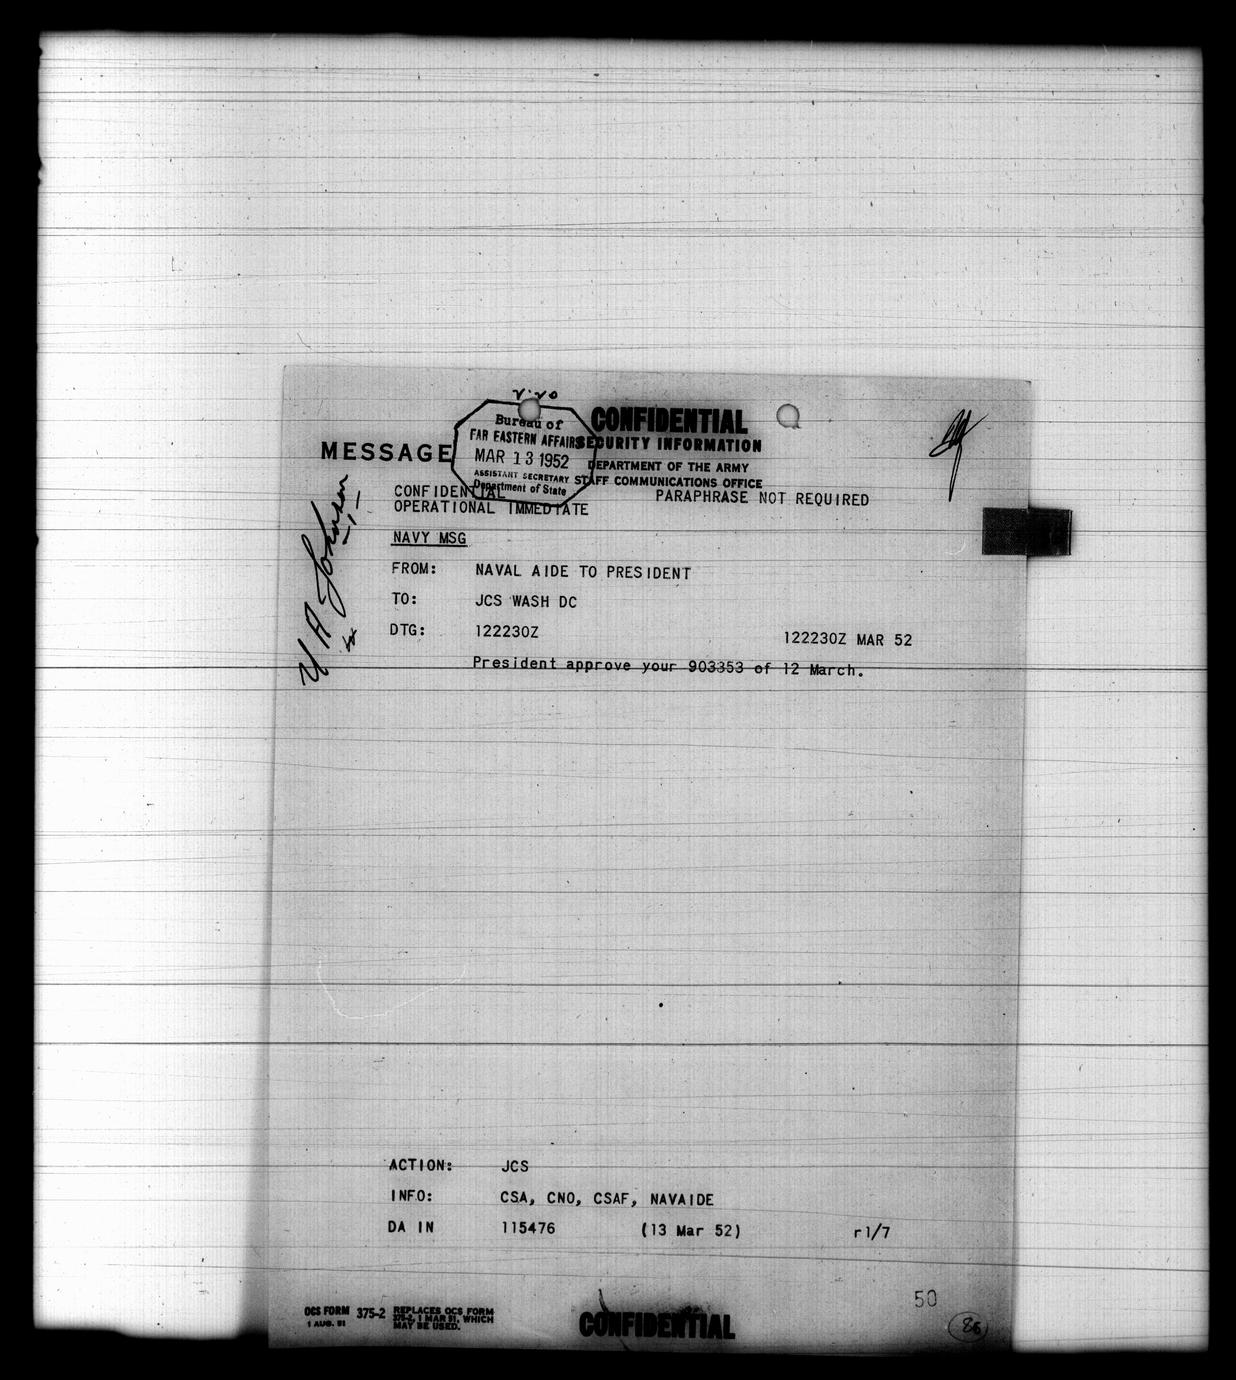 CONFIDENTIAL
SECURITY INFORMATION
DEPARTMENT OF THE ARMY
STAFF COMMUNICATIONS OFFICE
MESSAGE
Bureau of
FAR EASTERN AFFAIRS
MAR 13 1952
ASSISTANT SECRETARY
Department of State
CONFIDENTIAL PARAPHRASE NOT REQUIRED
OPERATIONAL IMMEDIATE
U A Johnson
NAVY MSG
FROM: NAVAL AIDE TO PRESIDENT
TO: JCS WASH DC
DTG: 122230Z 122230Z MAR 52
President approve your 903353 of 12 March.
ACTION: JCS
INFO: CSA, CNO, CSAF, NAVAIDE
DA IN 115476 (13 Mar 52) r1/7
50
OCS FORM 375-2 REPLACES OCS FORM
1 AUG. 51 375-2, 1 MAR 51, WHICH
MAY BE USED.
CONFIDENTIAL
86